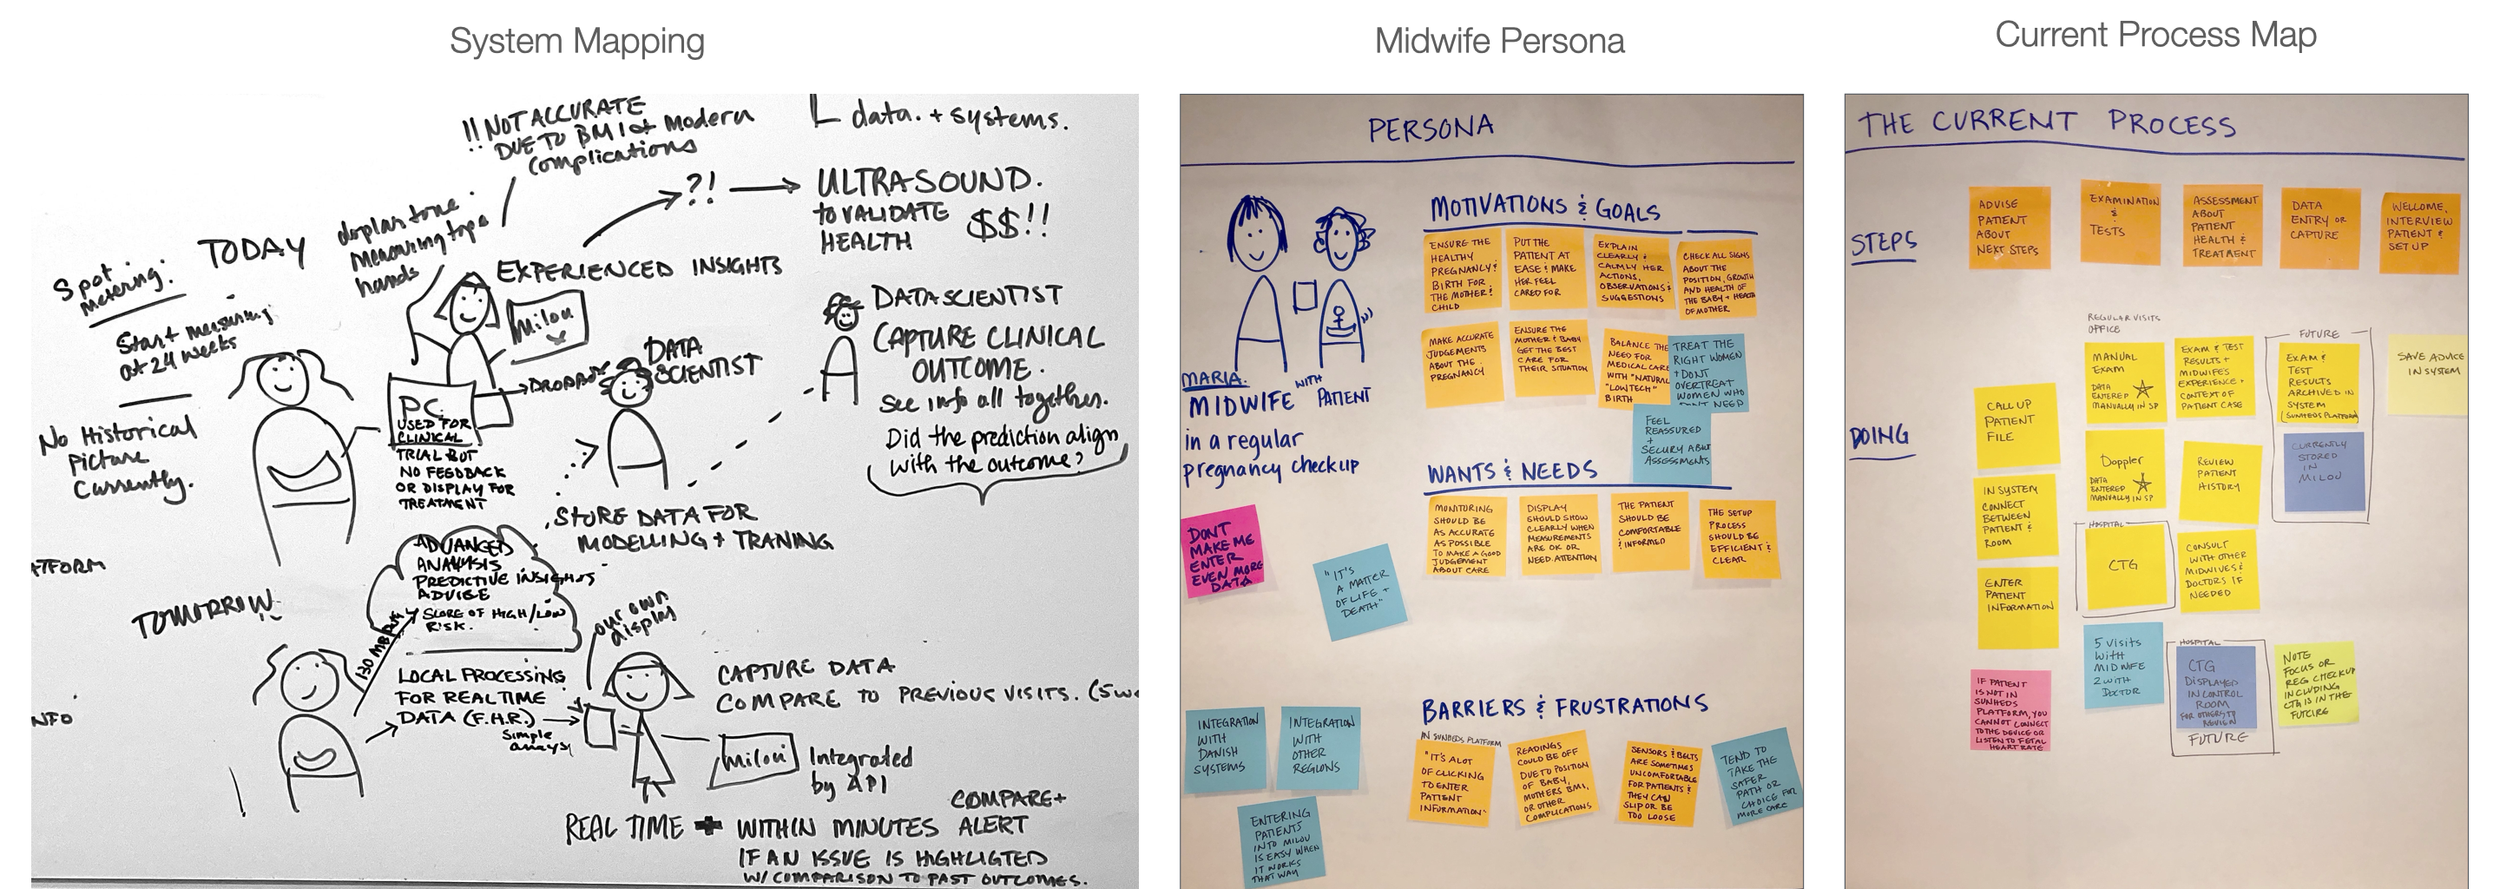 System Mapping
Midwife Persona
Current Process Map
!! NOT ACCURATE
DUE TO BMI or Modern
complications
data. + systems.
?!
ULTRASOUND.
to VALIDATE
HEALTH
$$!!
Spot
metering:
TODAY
measuring tape
hands
EXPERIENCED INSIGHTS
milou
Start measuring
at 24 weeks
No Historical
picture
Currently.
PC
USED FOR
CLINICAL
TRIAL BUT
NO FEEDBACK
OR DISPLAY FOR
TREATMENT
DATA
SCIENTIST
DATA SCIENTIST
CAPTURE CLINICAL
OUTCOME.
see info all together.
Did the prediction align
with the outcome?
STORE DATA FOR
MODELLING + TRANING
ATFORM
NFO
TOMORROW:
ADVANCED
ANALYSIS
PREDICTIVE INSIGHTS
ADVISE
SCORE OF HIGH/LOW
RISK.
our own
display
LOCAL PROCESSING
FOR REAL TIME
DATA (F.H.R.)
Simple
CAPTURE DATA
COMPARE TO PREVIOUS VISITS.
milou
Integrated
by API
COMPARE +
REAL TIME + WITHIN MINUTES ALERT
IF AN ISSUE IS HIGHLIGTED
W/ COMPARISON TO PAST OUTCOMES.
PERSONA
MARIA.
MIDWIFE WITH PATIENT
in a regular
pregnancy checkup
MOTIVATIONS & GOALS
ENSURE THE
HEALTHY
PREGNANCY &
BIRTH FOR
THE MOTHER &
CHILD
PUT THE
PATIENT AT
EASE & MAKE
HER FEEL
CARED FOR
EXPLAIN
CLEARLY &
CALMLY HER
ACTIONS,
OBSERVATIONS &
SUGGESTIONS
CHECK ALL SIGNS
ABOUT THE
POSITION, GROWTH
AND HEALTH OF
THE BABY + HEALTH
OF MOTHER
MAKE ACCURATE
JUDGEMENTS
ABOUT THE
PREGNANCY
ENSURE THE
MOTHER & BABY
GET THE BEST
CARE FOR
THEIR SITUATION
BALANCE THE
NEED FOR
MEDICAL CARE
WITH "NATURAL
"LOW TECH"
BIRTH
TREAT THE
RIGHT WOMEN
+ DONT
OVERTREAT
WOMEN WHO
DON'T NEED
FEEL
REASSURED
+
SECURY ABOUT
ASSESSMENTS
WANTS & NEEDS
MONITORING
SHOULD BE
AS ACCURATE
AS POSSIBLE
TO MAKE A GOOD
JUDGEMENT
ABOUT CARE
DISPLAY
SHOULD SHOW
CLEARLY WHEN
MEASUREMENTS
ARE OK OR
NEED ATTENTION
THE PATIENT
SHOULD BE
COMFORTABLE
& INFORMED
THE SETUP
PROCESS
SHOULD BE
EFFICIENT &
CLEAR
DON'T
MAKE ME
ENTER
EVEN MORE
DATA
"IT'S
A MATTER
OF LIFE +
DEATH"
BARRIERS & FRUSTRATIONS
INTEGRATION
WITH
DANISH
SYSTEMS
INTEGRATION
WITH
OTHER
REGIONS
ENTERING
PATIENTS
INTO MILOU
IS EASY WHEN
IT WORKS
THAT WAY
IN SUNBEDS PLATFORM
"IT'S A LOT
OF CLICKING
TO ENTER
PATIENT
INFORMATION"
READINGS
COULD BE OFF
DUE TO POSITION
OF BABY,
MOTHERS BMI,
OR OTHER
COMPLICATIONS
SENSORS & BELTS
ARE SOMETIMES
UNCOMFORTABLE
FOR PATIENTS &
THEY CAN
SLIP OR BE
TOO LOOSE
TEND TO
TAKE THE
SAFER
PATH OR
CHOICE FOR
MORE CARE
THE CURRENT PROCESS
STEPS
ADVISE
PATIENT
ABOUT
NEXT STEPS
EXAMINATION
&
TESTS
ASSESSMENT
ABOUT
PATIENT
HEALTH &
TREATMENT
DATA
ENTRY OR
CAPTURE
WELCOME,
INTERVIEW
PATIENT &
SET UP
DOING
CALL UP
PATIENT
FILE
IN SYSTEM
CONNECT
BETWEEN
PATIENT &
ROOM
ENTER
PATIENT
INFORMATION
IF PATIENT
IS NOT IN
SUNHEDS
PLATFORM, YOU
CANNOT CONNECT
TO THE DEVICE OR
LISTEN TO FETAL
HEART RATE
REGULAR VISITS
OFFICE
MANUAL
EXAM
DATA
ENTERED
MANUALLY IN SP
Doppler
DATA
ENTERED
MANUALLY IN SP
HOSPITAL
CTG
5 VISITS
WITH
MIDWIFE
2 WITH
DOCTOR
EXAM & TEST
RESULTS +
MIDWIFE'S
EXPERIENCE +
CONTEXT OF
PATIENT CASE
REVIEW
PATIENT
HISTORY
CONSULT
WITH OTHER
MIDWIVES &
DOCTORS IF
NEEDED
HOSPITAL
CTG
DISPLAYED
IN CONTROL
ROOM
FOR OTHERS TO
REVIEW
FUTURE
FUTURE
EXAM &
TEST
RESULTS
ARCHIVED IN
SYSTEM
(SUNHEDS PLATFORM)
CURRENTLY
STORED
IN
MILOU
NOTE
FOCUS OR
REG CHECKUP
INCLUDING
CTG IS IN THE
FUTCIRE
SAVE ADVICE
IN SYSTEM